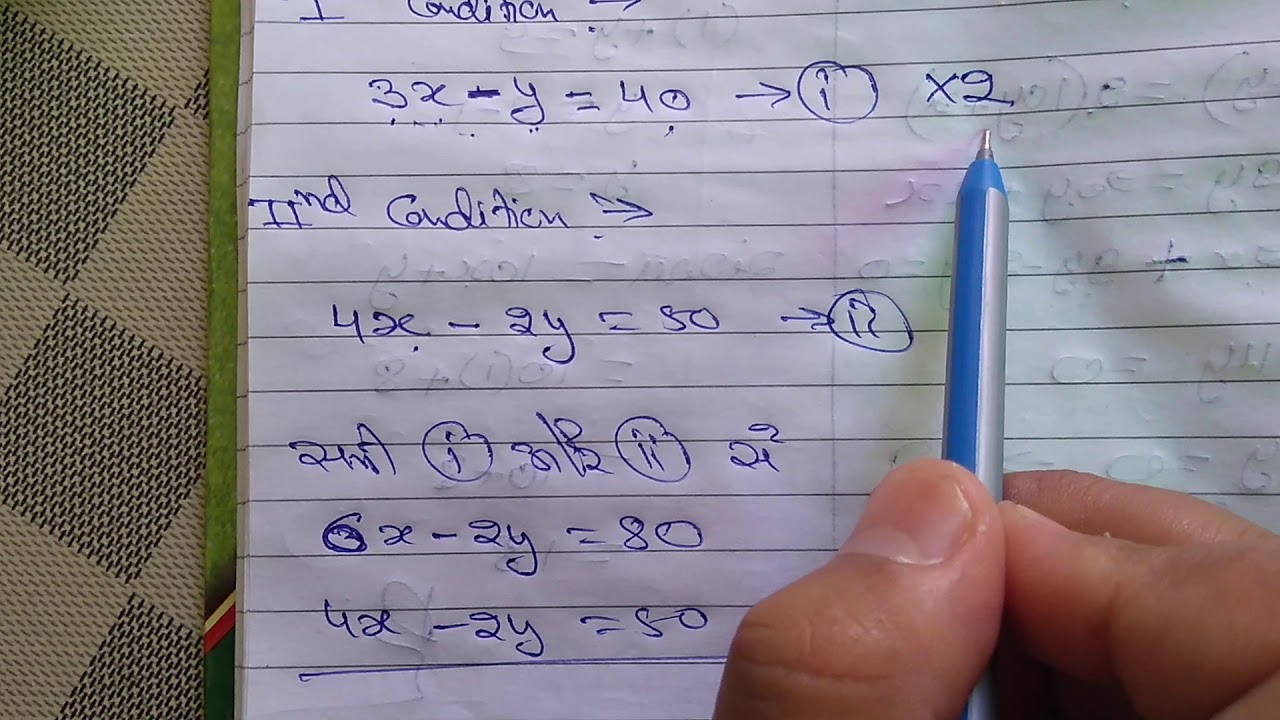 I Condition →
3x - y = 40 → (i) ×2
IInd Condition →
4x - 2y = 50 → (ii)
समी (i) और (ii) से
6x - 2y = 80
4x - 2y = 50